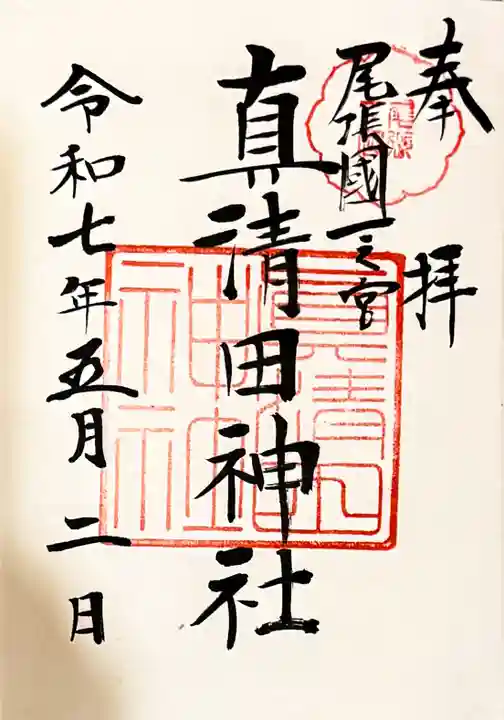 奉拝
尾張國一之宮
真清田神社
令和七年五月二日